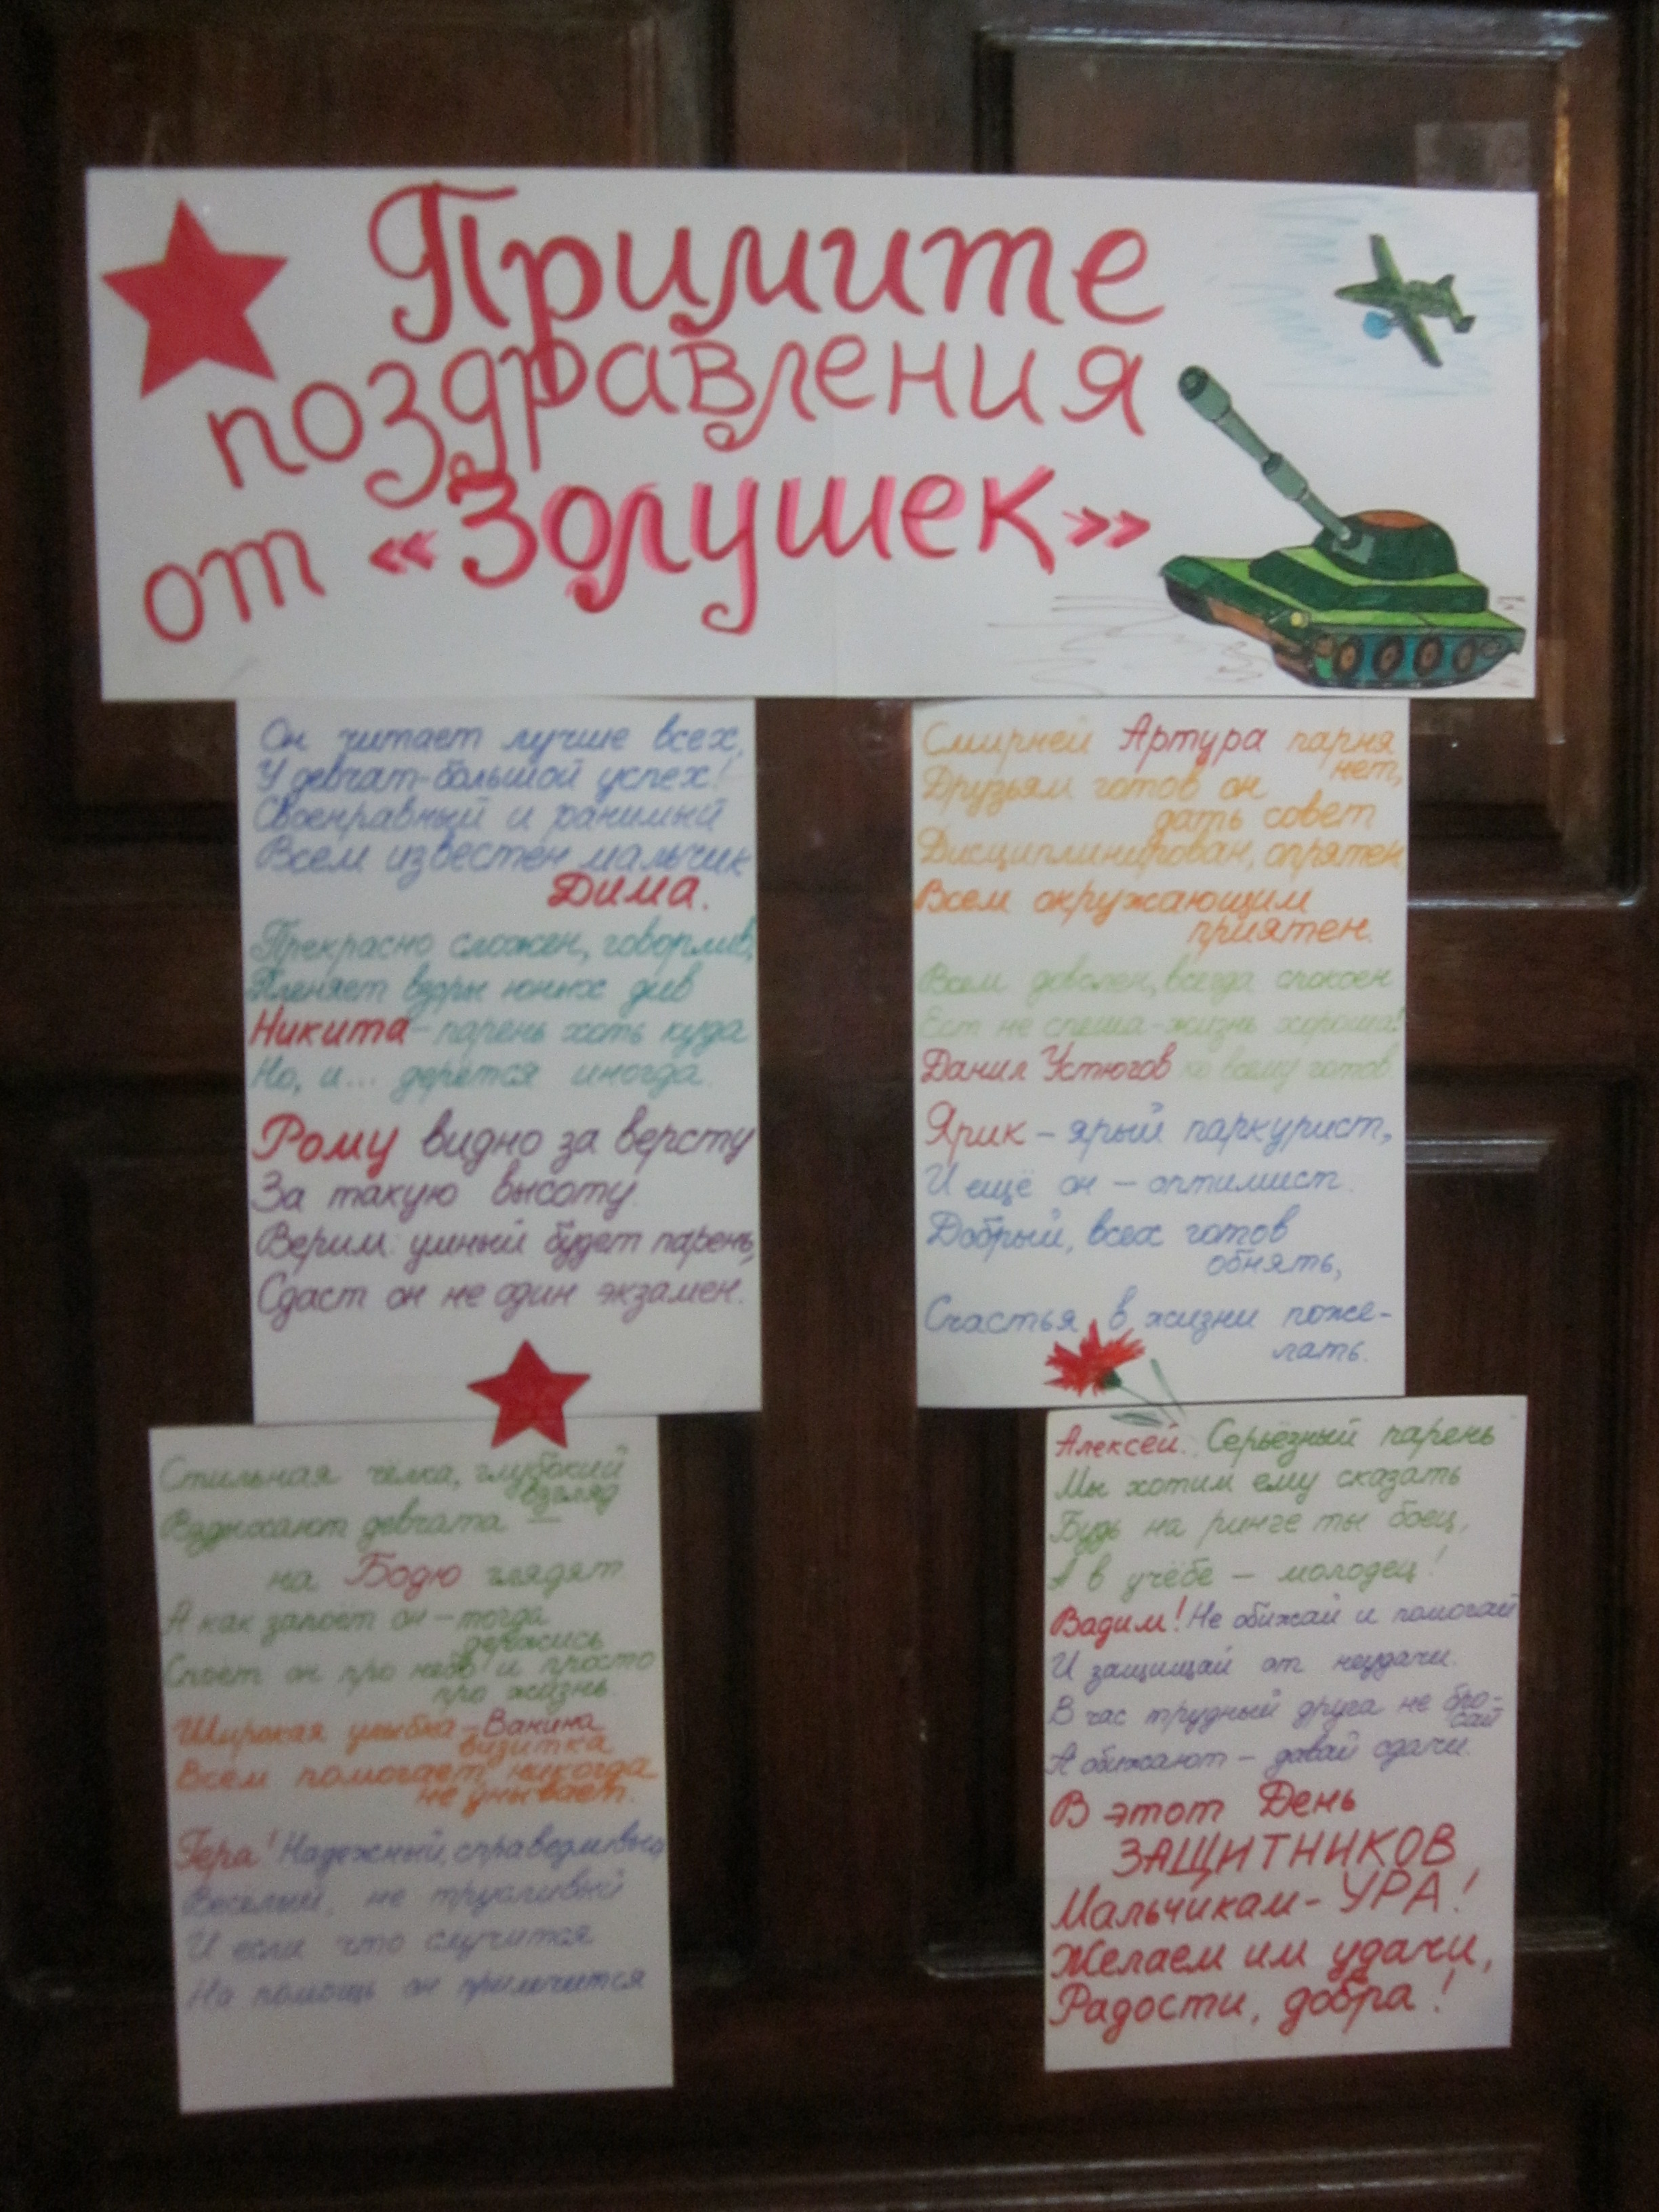 Примите
поздравления
от «Золушек»
Он читает лучше всех,
У девчат-большой успех!
Своенравный и ранимый
Всем известен мальчик
Дима.
Прекрасно сложен, говорлив,
Пленяет взоры юных див
Никита-парень хоть куда
Но, и... дерётся иногда.
Рому видно за версту
За такую высоту.
Верим: умный будет парень,
Сдаст он не один экзамен.
Стильная чёлка, глубокий
взгляд
Вздыхают девчата —
на Бодю глядят
А как запоёт он-тогда
держись
Споёт он про небо и просто
про жизнь.
Широкая улыбка-Ванина
визитка
Всем помогает никогда
не унывает.
Гера! Надежный, справедливый,
Весёлый, не трусливый
И если что случится
На помощь он примчится
Смирней Артура парня
нет,
Друзьям готов он
дать совет
Дисциплинирован, опрятен
Всем окружающим
приятен.
Всем доволен, всегда спокоен
Ест не спеша-жизнь хороша!
Данил Устюгов ко всему готов
Ярик - ярый паркурист,
И ещё он - оптимист.
Добрый, всех готов
обнять,
Счастья в жизни поже-
лать.
Алексей. Серьёзный парень
Мы хотим ему сказать
Будь на ринге ты боец,
А в учёбе - молодец!
Вадим! Не обижай и помогай
И защищай от неудачи.
В час трудный друга не бро-
сай
А обижают - давай сдачи.
В этот День
ЗАЩИТНИКОВ
Мальчикам-УРА!
Желаем им удачи,
Радости, добра!